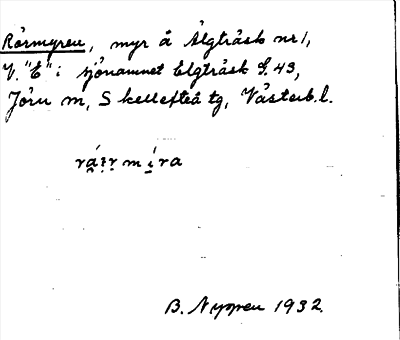 Rörmyren, myr å Älgträsk nr 1,
V. "E" i sjönamnet Elgträsk S. 43,
Jörn sn, Skellefteå tg, Västerb. l.
B. Nyman 1932.